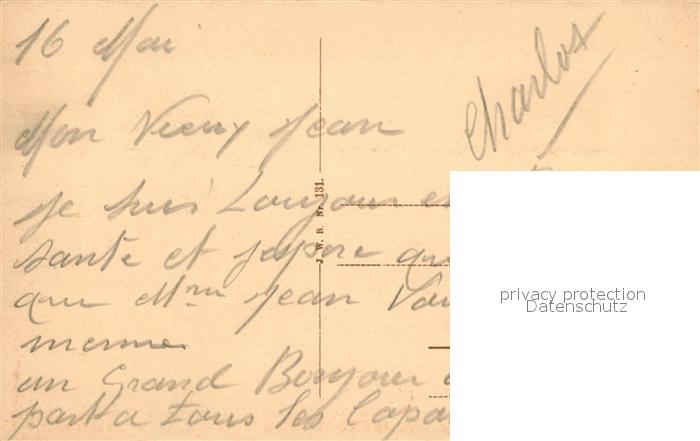 16 Mai
Charlos
Mon Vieux Jean
Je suis Toujour en
santé et j'espère que
que Mme Jean Vou
meme
un Grand Bonjour
part a tous les Copa
J. W. B. Nr. 131.
privacy protection
Datenschutz